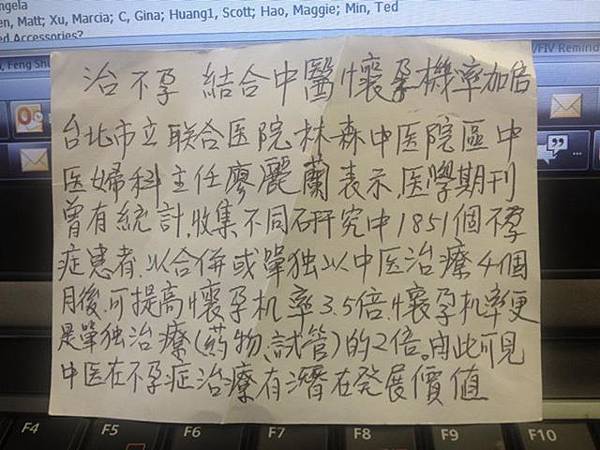 ngela
en, Matt; Xu, Marcia; C, Gina; Huang1, Scott; Hao, Maggie; Min, Ted
ed Accessories?
/FIV Remind
, Feng Sh
治不孕 結合中醫懷孕機率加倍
台北市立联合医院林森中医院區中
医婦科主任廖麗蘭表示,医學期刊
曾有統計,收集不同研究中1851個不孕
症患者,以合併或單独以中医治療4個
月後,可提高懷孕机率3.5倍,懷孕机率更
是單独治療(药物、試管)的2倍。由此可見
中医在不孕症治療有潛在發展價值
F4 F5 F6 F7 F8 F9 F10